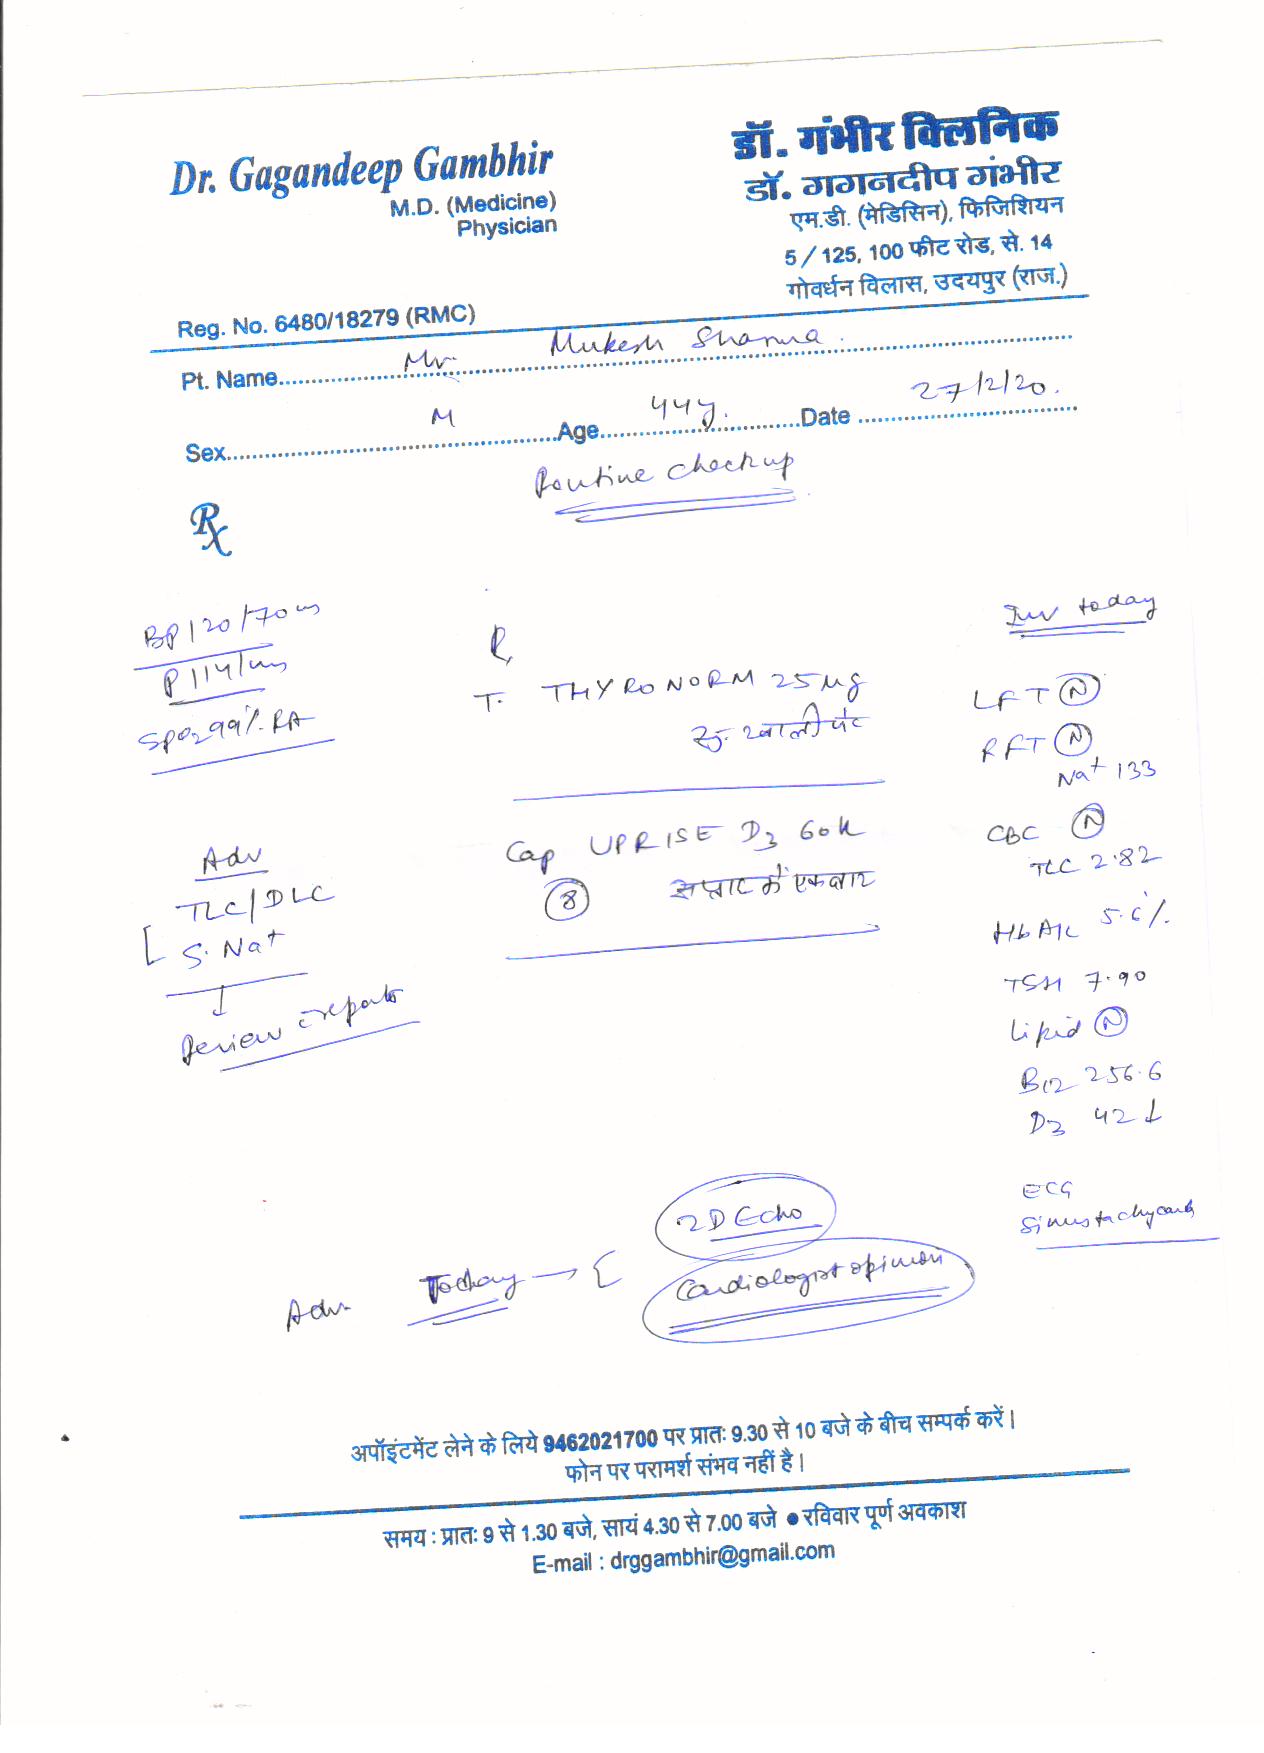 Dr. Gagandeep Gambhir
M.D. (Medicine)
Physician
Reg. No. 6480/18279 (RMC)
डॉ. गंभीर क्लिनिक
डॉ. गगनदीप गंभीर
एम.डी. (मेडिसिन), फिजिशियन
5 / 125, 100 फीट रोड, से. 14
गोवर्धन विलास, उदयपुर (राज.)
Pt. Name Mr Mukesh Sharma
Sex M Age 44y. Date 27/2/20.
Routine checkup
Rx
BP 120/70
P 114/
SpO2 99% RA
Adv
TLC/DLC
S. Na+
Review c reports
R
T. THYRONORM 25 µg
सु. खाली पेट
Cap UPRISE D3 60k
8 सप्ताह में एक बार
Inv today
LFT N
RFT N
Na+ 133
CBC N
TLC 2.82
HbA1C 5.6%
TSH 7.90
Lipid N
B12 256.6
D3 42 ↓
ECG
Sinus tachycardia
Adv. Today → [ 2D Echo
Cardiologist opinion
अपॉइंटमेंट लेने के लिये 9462021700 पर प्रातः 9.30 से 10 बजे के बीच सम्पर्क करें।
फोन पर परामर्श संभव नहीं है।
समय : प्रातः 9 से 1.30 बजे, सायं 4.30 से 7.00 बजे ● रविवार पूर्ण अवकाश
E-mail : drggambhir@gmail.com